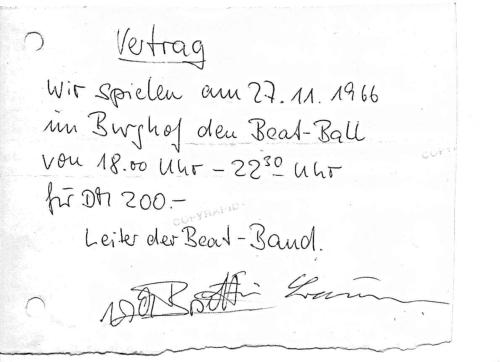 Vertrag
Wir spielen am 27.11.1966
im Burghof den Beat-Ball
von 18.00 Uhr - 22³⁰ Uhr
für DM 200.-
Leiter der Beat-Band.